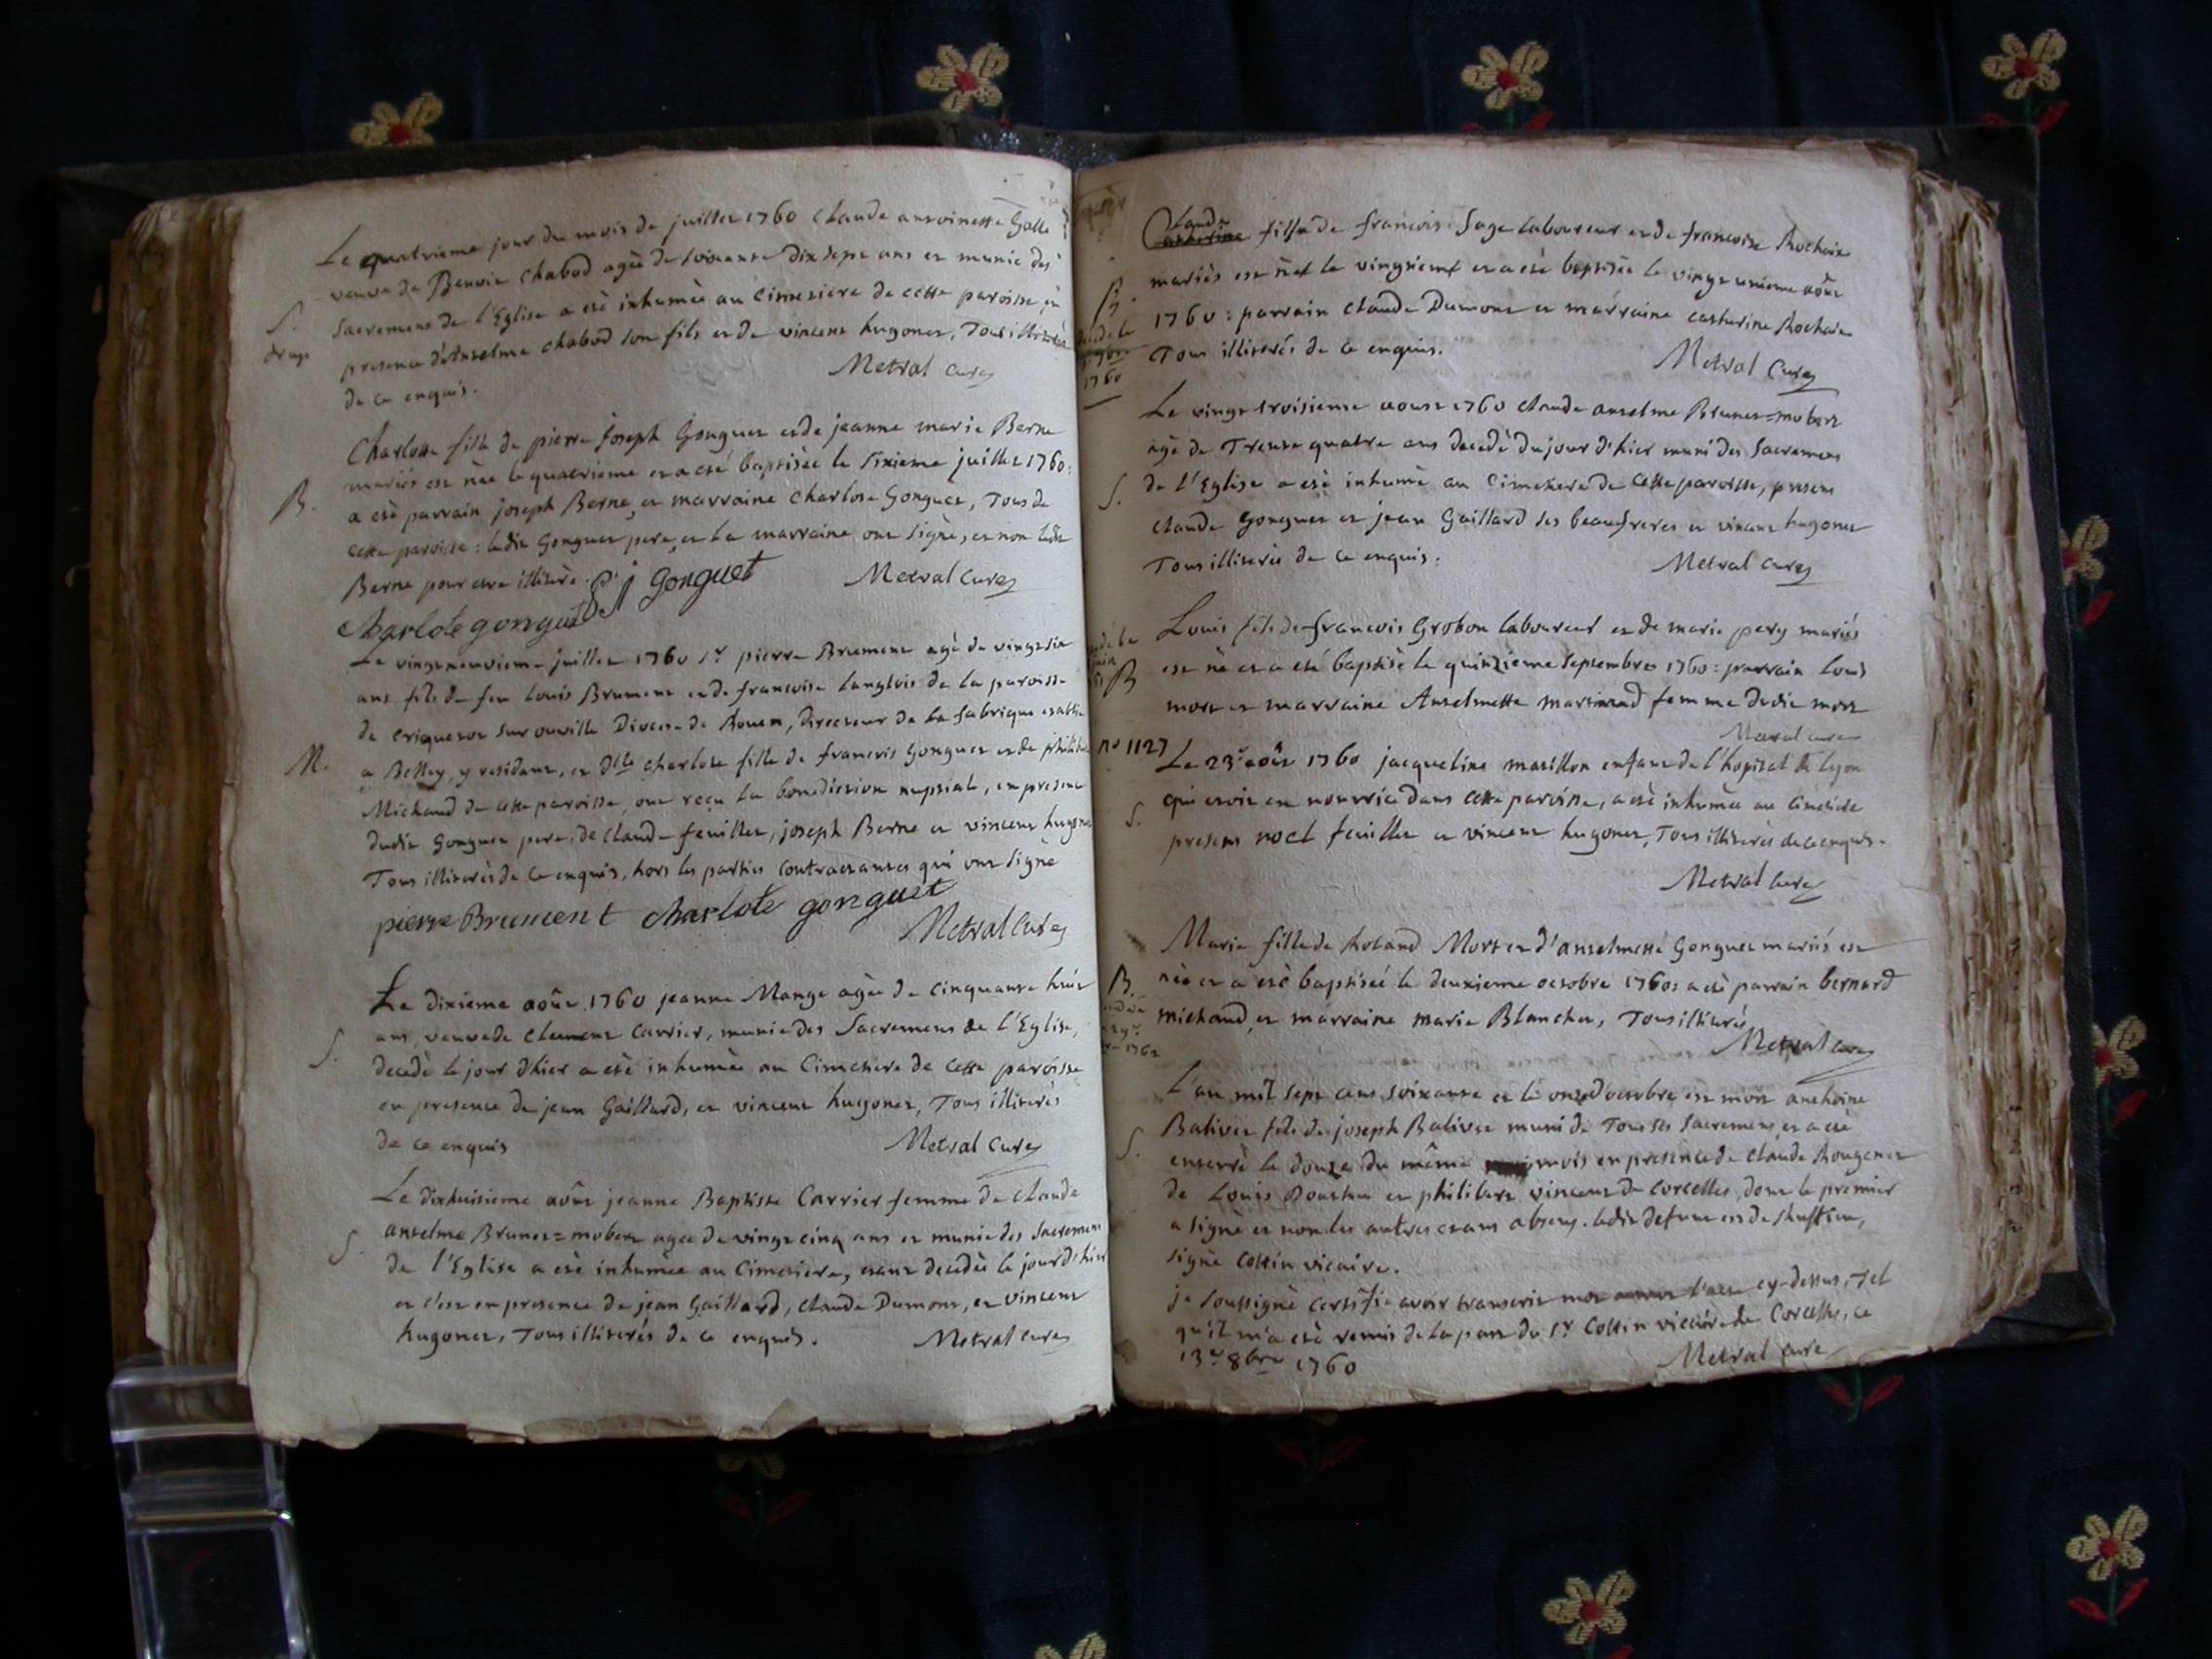 Le quatrieme jour du mois de juillet 1760 claude antoinette Galle
veuve de Benoit chabod agée de soixante dix sept ans et munie des
S. Sacremens de l'Eglise a eté inhumée au Cimetiere de cette paroisse, en
presence d'Anselme chabod son fils et de vincent hugonet, Tous illiterés
de ce enquis. Metral curé
Charlotte fille de pierre joseph Gonguet et de jeanne marie Berne
mariés est née le quatrieme et a eté baptisée le sixieme juillet 1760:
B. a eté parrain joseph Berne, et marraine charlote Gonguet, Tous de
cette paroisse: ledit Gonguet pere, et la marraine ont signé, et non ledit
Berne pour etre illiteré. p j gonguet Metral curé
charlote gonguet
Le vingtneuvieme juillet 1760 sr pierre Brument agé de vingt six
ans fils de feu Louis Brument et de francoise langlois de la paroisse
de criquetot sur ouville Diocese de Rouen, directeur de la fabrique etablie
M. a Belley, y residant, et Dlle charlote fille de francois Gonguet et de philiberte
Michaud de cette paroisse, ont reçu la benediction nuptiale, en presence
dudit Gonguet pere, de claude feuillet, joseph Berne et vincent hugonet
Tous illiterés de ce enquis, hors les parties contractantes qui ont signé
pierre Brument charlote gonguet
Metral curé
Le dixieme août 1760 jeanne Mange agée de cinquante huit
ans, veuve de clement carrier, munie des Sacremens de l'Eglise,
S. decedé le jour d'hier a eté inhumée au Cimetiere de cette paroisse
en presence de jean Gaillard, et vincent hugonet, Tous illiterés
de ce enquis Metral curé
Le dixhuitieme août jeanne Baptiste Carrier femme de claude
anselme Brunet=mobert agée de vingt cinq ans et munie des sacremens
S. de l'Eglise a eté inhumée au Cimetiere, etant decedée le jour d'hier
et c'est en presence de jean Gaillard, claude Dumont, et vincent
hugonet, Tous illiterés de ce enquis. Metral curé
Claudi catherine fille de francois Sage laboureur et de francoise Rochaix
mariés est née le vingtieme et a eté baptisée le vingt unieme août
B. 1760: parrain claude Dumont et marraine catherine Rochaix
Tous illiterés de ce enquis. Metral curé
1760
Le vingt troisieme aoust 1760 claude anselme Brunet=mobert
agé de Trente quatre ans decedé du jour d'hier muni des Sacremens
S. de l'Eglise a eté inhumé au Cimetiere de cette paroisse, presens
claude Gonguet et jean Gaillard ses beaufreres et vincent hugonet
Tous illiterés de ce enquis. Metral curé
Louis fils de francois Grobon laboureur et de marie pery mariés
B est né et a eté baptisé le quinzieme septembre 1760: parrain Louis
mort et marraine Anselmette martinand femme dudit mort
Metral curé
no 1127 Le 23e août 1760 jacqueline masillon enfant de l'hopital de lyon
qui etoit en nourrice dans cette paroisse, a eté inhumée au Cimetiere
S. presens noel feuillet et vincent hugonet, Tous illiterés de ce enquis.
Metral curé
Marie fille de Roland Mort et d'anselmette Gonguet mariés est
B. née et a eté baptisée le deuxieme octobre 1760: a eté parrain bernard
michaud, et marraine marie Blanchet, Tous illiterés
1762
Metral curé
L'an mil sept cens soixante et le onze d'octobre est mort anthoine
S. Balivet fils de joseph Balivet muni de Tous ses Sacremens, et a eté
enterré le douze du même mois en presence de claude Rougemet
de Louis et philibert vincent de corcelles, dont le premier
a signé et non les autres etans absens. ledit defunt
signé Cottin vicaire.
je soussigné certifie avoir transcrit mot l'acte cy-dessus, Tel
qu'il m'a eté remis de la part du sr Cottin vicaire de Corcelles, ce
13e 8bre 1760 Metral curé